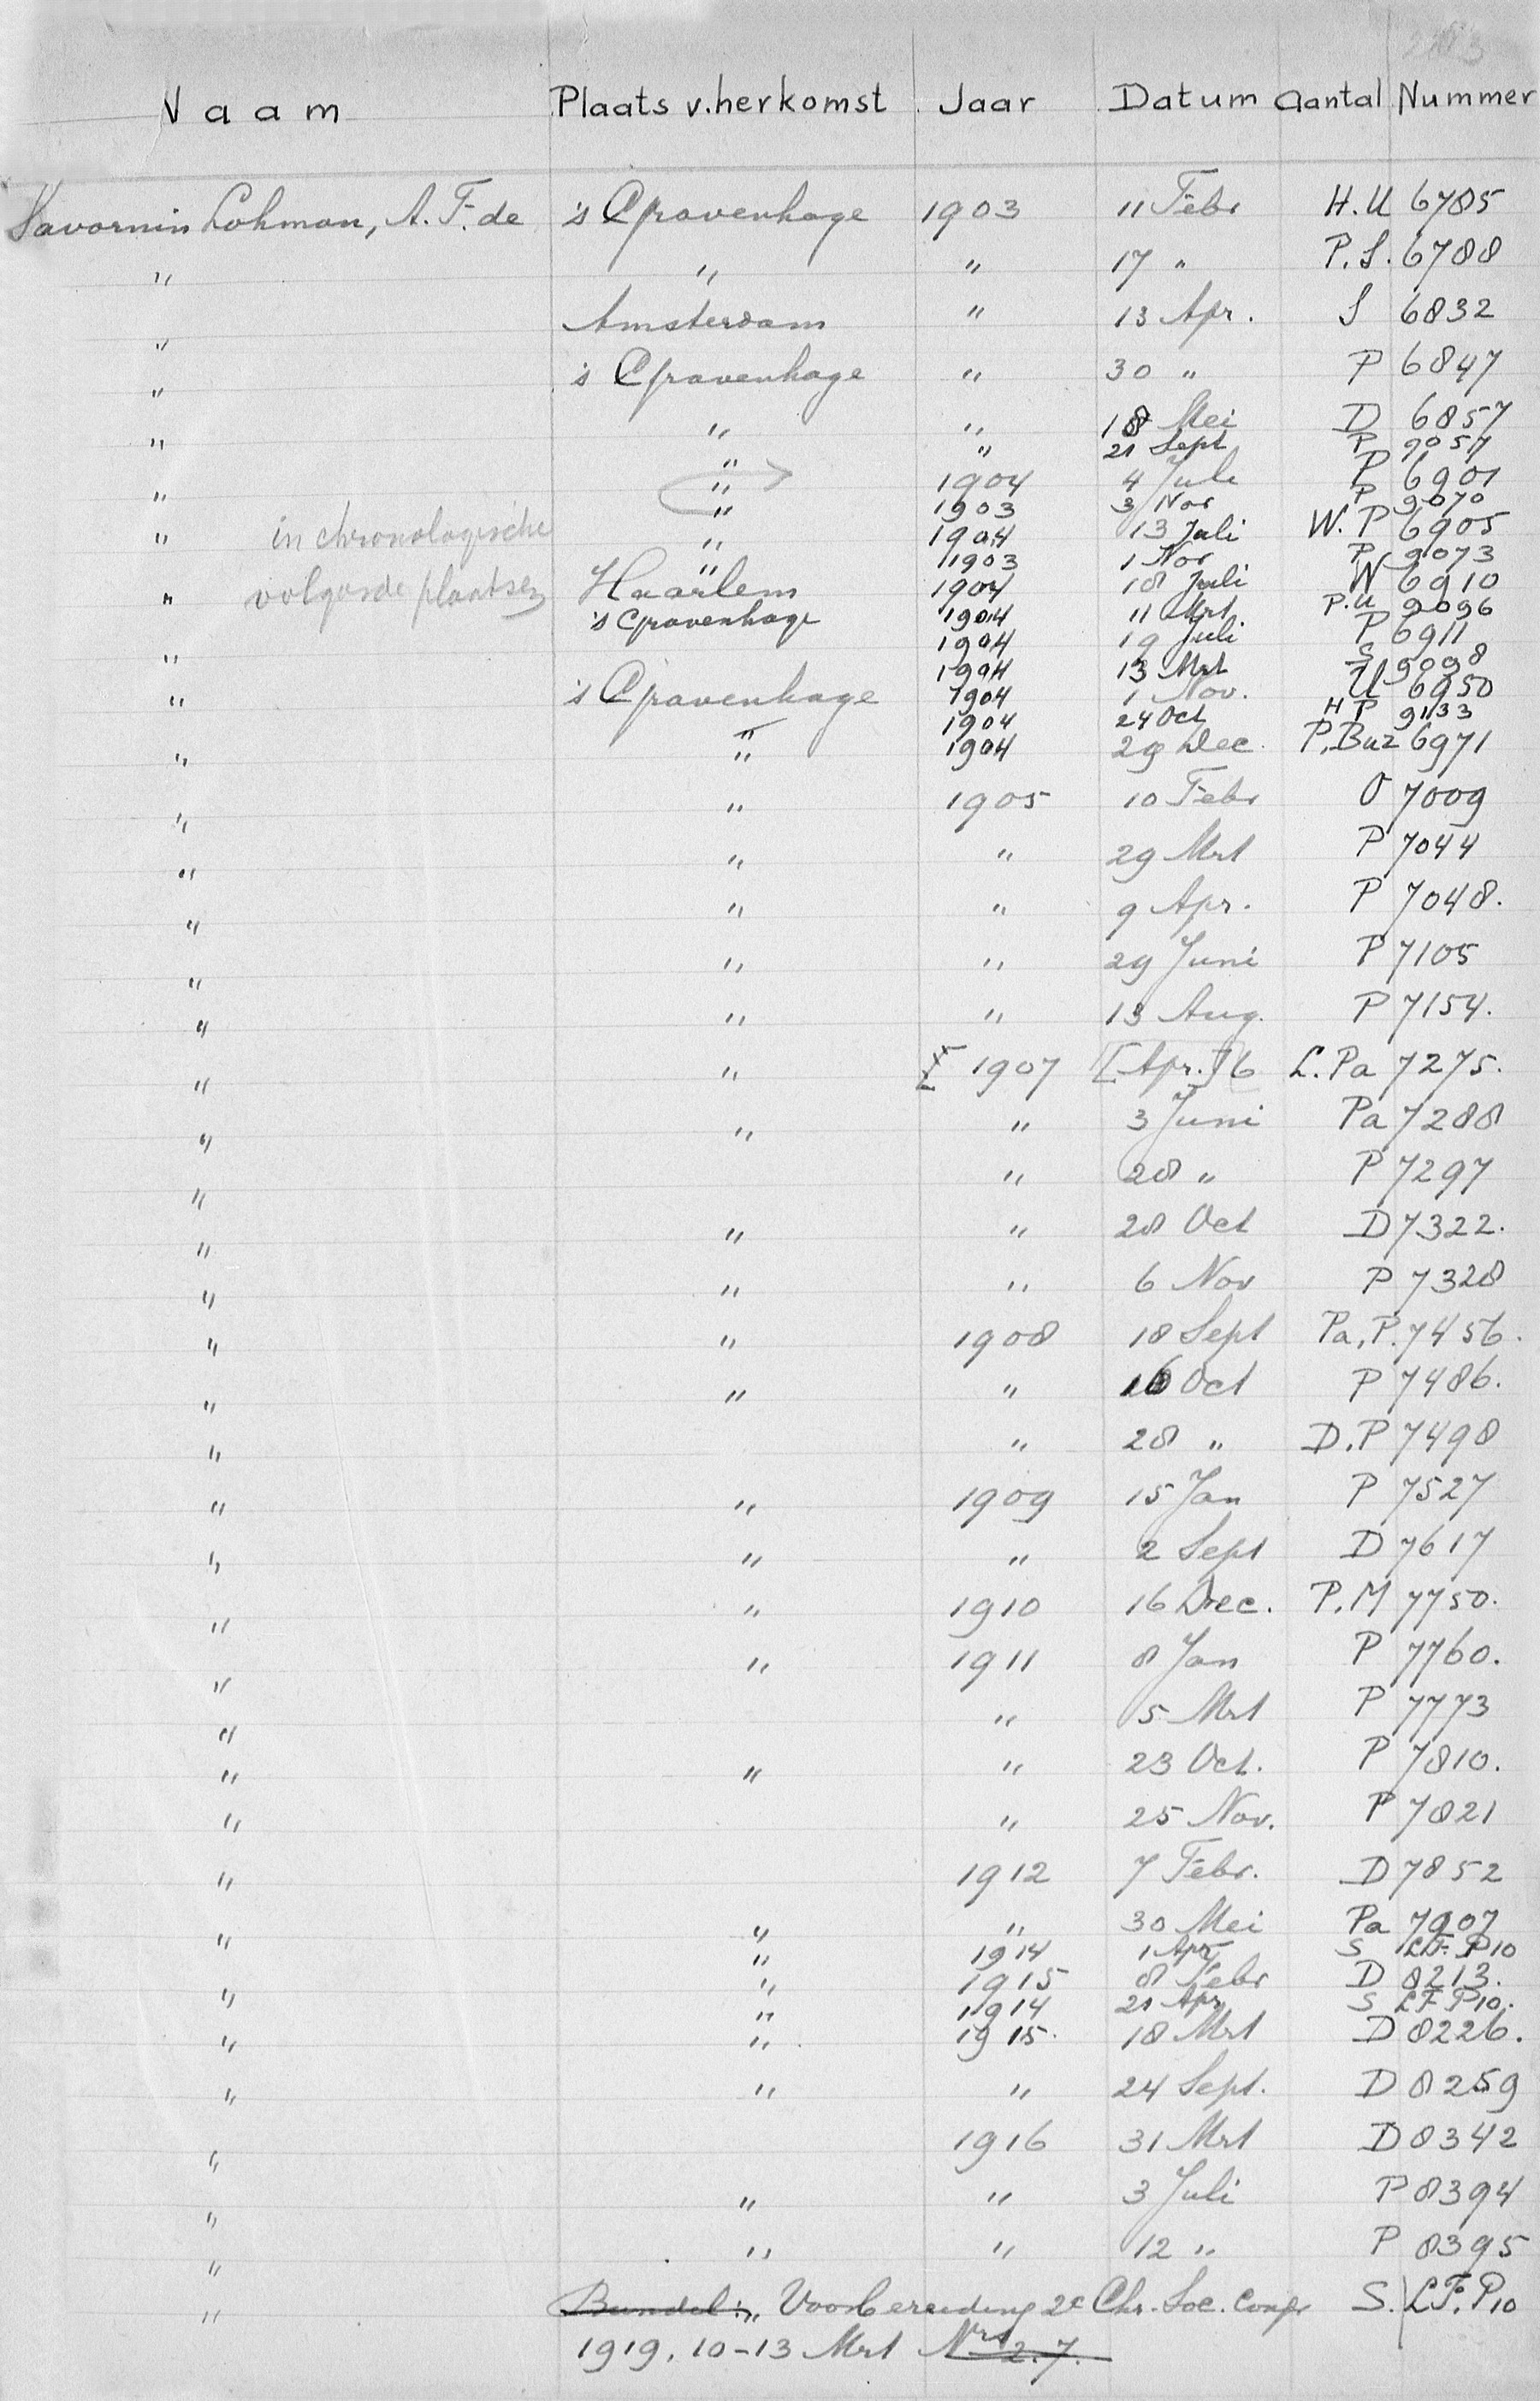 Naam Plaats v. herkomst Jaar Datum Aantal Nummer
Savornin Lohman, A. F. de 's Gravenhage 1903 11 Febr H.U 6785
" " " 17 " P.S. 6788
" Amsterdam " 13 Apr. S 6832
" 's Gravenhage " 30 " P 6847
" " " 18 Mei D 6857
" " 21 Sept P 9057
" " 1904 4 Juli P 6901
" 1903 3 Nov P 9070
" in chronologische " 1904 13 Juli W. P 6905
" 1903 1 Nov P 9073
" volgorde plaatsen Haarlem 1904 18 Juli W 6910
's Gravenhage 1904 11 Mrt. P.U 9096
" 1904 19 Juli P 6911
1904 13 Mrt S 9098
" 's Gravenhage 1904 1 Nov. U 6950
" 1904 24 Oct H P 9133
" " 1904 29 Dec. P. Buz 6971
" " 1905 10 Febr O 7009
" " " 29 Mrt P 7044
" " " 9 Apr. P 7048.
" " " 29 Juni P 7105
" " " 13 Aug. P 7154.
" " [ 1907 [Apr.] 6 L. Pa 7275.
" " " 3 Juni Pa 7288
" " 28 " P 7297
" " " 28 Oct D 7322.
" " " 6 Nov P 7328
" " 1908 18 Sept Pa, P. 7456.
" " " 16 Oct P 7486.
" " 28 " D.P 7498
" " 1909 15 Jan P 7527
" " " 2 Sept D 7617
" " 1910 16 Dec. P. M 7750.
" " 1911 8 Jan P 7760.
" " 5 Mrt P 7773
" " " 23 Oct. P 7810.
" " 25 Nov. P 7821
" 1912 7 Febr. D 7852
" " " 30 Mei Pa 7907
" 1914 1 Apr S LF. P10
" " 1915 8 Febr D 8213.
" 1914 21 Apr S LF P10.
" " 1915. 18 Mrt D 8226.
" " " 24 Sept. D 8259
" 1916 31 Mrt D 8342
" " " 3 Juli P 8394
" " " 12 " P 8395
" Bundel: " Voorbereiding 2e Chr. Soc. Congr S. LF. P10
1919, 10-13 Mrt Nrs 2.7.